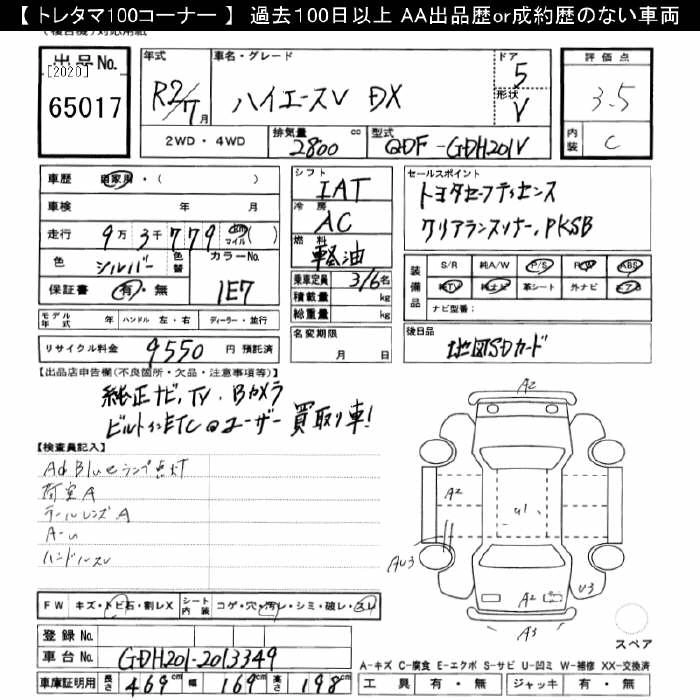 【 トレタマ100コーナー 】 過去100日以上 AA出品歴or成約歴のない車両
出品No.
[2020]
65017
年式
R2/7月
車名・グレード
ハイエースV DX
ドア
5
形状
V
評価点
3.5
内装
C
2WD・4WD
排気量
2800 cc
型式
QDF-GDH201V
車歴 自家用・( )
車検 年 月
走行 9万3千779 km マイル ( )
色 シルバー 色替
カラーNo.
1E7
保証書 有・無
シフト
IAT
冷房
AC
燃料
軽油
乗車定員 3/6名
積載量 kg
総重量 kg
セールスポイント
トヨタセーフティセンス
クリアランスソナー, PKSB
装備品
S/R 純A/W P/S P/W ABS
純TV 純ナビ 革シート 外ナビ エアB
ナビ型番:
モデル年式 年 ハンドル 左・右 ディーラー・並行
リサイクル料金 9550 円 預託済
名変期限
月 日
後日品
地図SDカード
【出品店申告欄(不良箇所・欠品・注意事項等)】
純正ナビ, TV. Bカメラ
ビルトインETC ユーザー買取り車!
【検査員記入】
Ad Blueランプ点灯
荷室A
テールレンズA
A-u
ハンドルスレ
A2
A2
U1
AU3
A2
U3
A3
スペア
FW キズ・トビ石・割レX シート内装 コゲ・穴・汚レ・シミ・破レ・スレ
登録No.
車台No. GDH201-2013349
車庫証明用 長さ 469cm 幅 169cm 高さ 198cm
A-キズ C-腐食 E-エクボ S-サビ U-凹ミ W-補修 XX-交換済
工具 有・無 ジャッキ 有・無